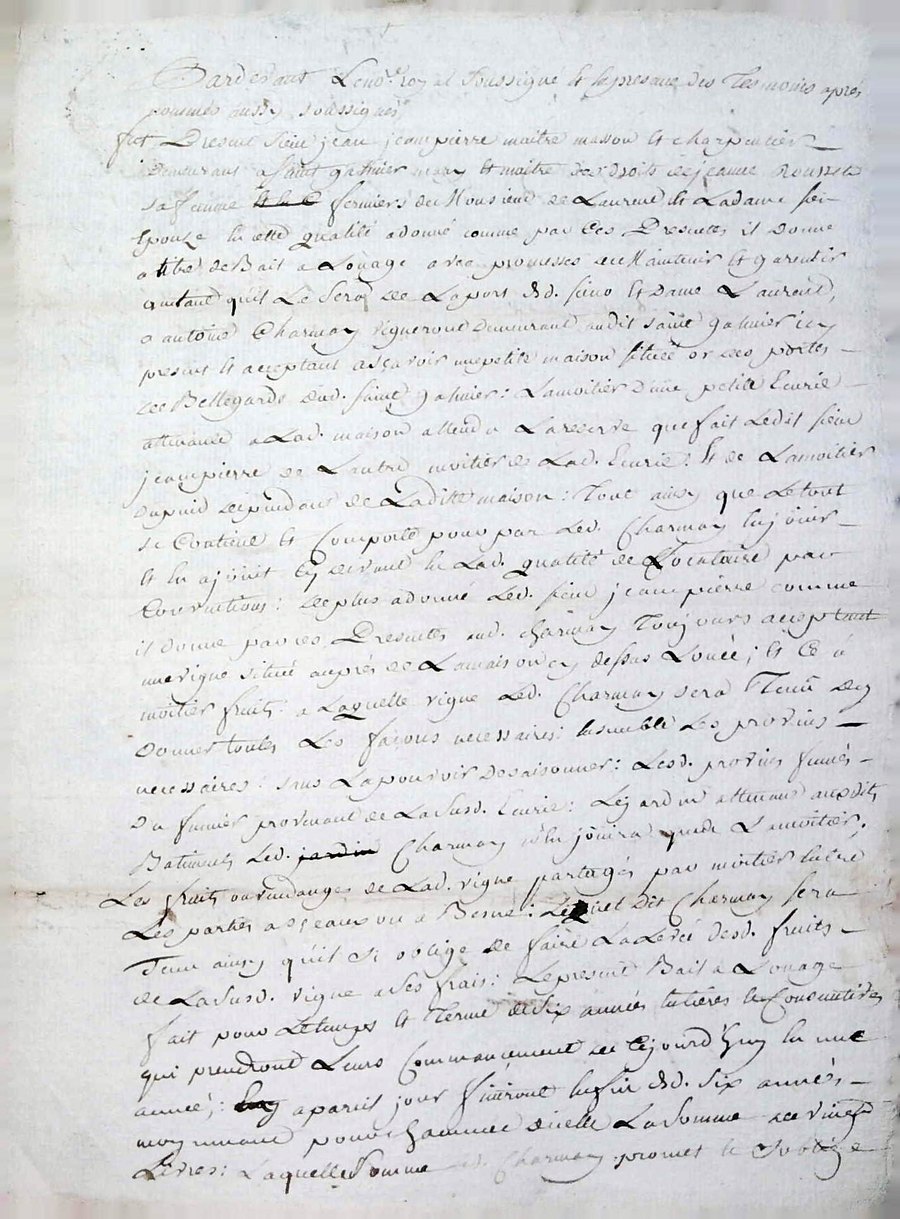 Pardevant Le no.re royal soussigné et en presance des Temoins après
nommés aussy soussignés
fut Present sieur jean jeanpierre maitre masson et charpentier
demeurant a saint galmier mary et maitre des droits de jeanne Rousset
sa femme fermiers de Monsieur de Laurent et Ladame son
Epouze en cette qualité a donné comme par Ces Presentes il donne
a titre de Bail a Louage avec promesses de Maintenir et garentir
autant qu'il Le sera de Lapart desd. sieur et Dame Laurent,
a antoine Charmay vigneront Demeurant audit saint galmier icy
present et acceptant asçavoir une petite maison située or des portes
de Bellegarde dud. saint galmier: Lamoitier D'une petite Ecurie
attenante a Lad. maison attendu Lareserve que fait Ledit sieur
jeanpierre de Lautre moitier de Lad. Ecurie: Et de Lamoitier
du puid dependant de Laditte maison: Tout ainsy que Letout
se Contient et Comporte pour par Led. Charmay en jouir
et en a jouit cy devant en Lad. qualité de Locataire par
Conventions: de plus a donné Led. sieur jeanpierre comme
il donne par ces Presentes aud. Charmay Toujours acceptant
une vigne située auprés de Lamaison cy dessus Louée; et Ce a
moitier fruits: a Laquelle vigne Led. Charmay sera Tenu de y
donner toutes Les façons necessaires: ensemble Les provins
necessaires: sans La pouvoir desaisonner: Lesd. provins fumés
du fumier provenant de La susd. Ecurie: Le jardin attenant auxdits
Batiments Led. jardin Charmay n'en jouira que de Lamoitier;
Les fruits ou vendanges de Lad. vigne partagés par moitier entre
Les parties a sseaux ou a Benne: Lequel dit Charmay sera
Tenu ainsy qu'il si oblige de faire La Levée desd. fruits
de La susd. vigne a ses frais: Le present Bail a Louage
fait pour Letemps et Terme de six années entières et Consecutives
qui prendront Leurs Commancement de Cejourd'huy en une
année: a pareil jour finiront en fin desd. six années
moyennant pour chaque année d'icelle La somme de vingt
Livres: Laquelle somme Led. Charmay promet et s'oblige